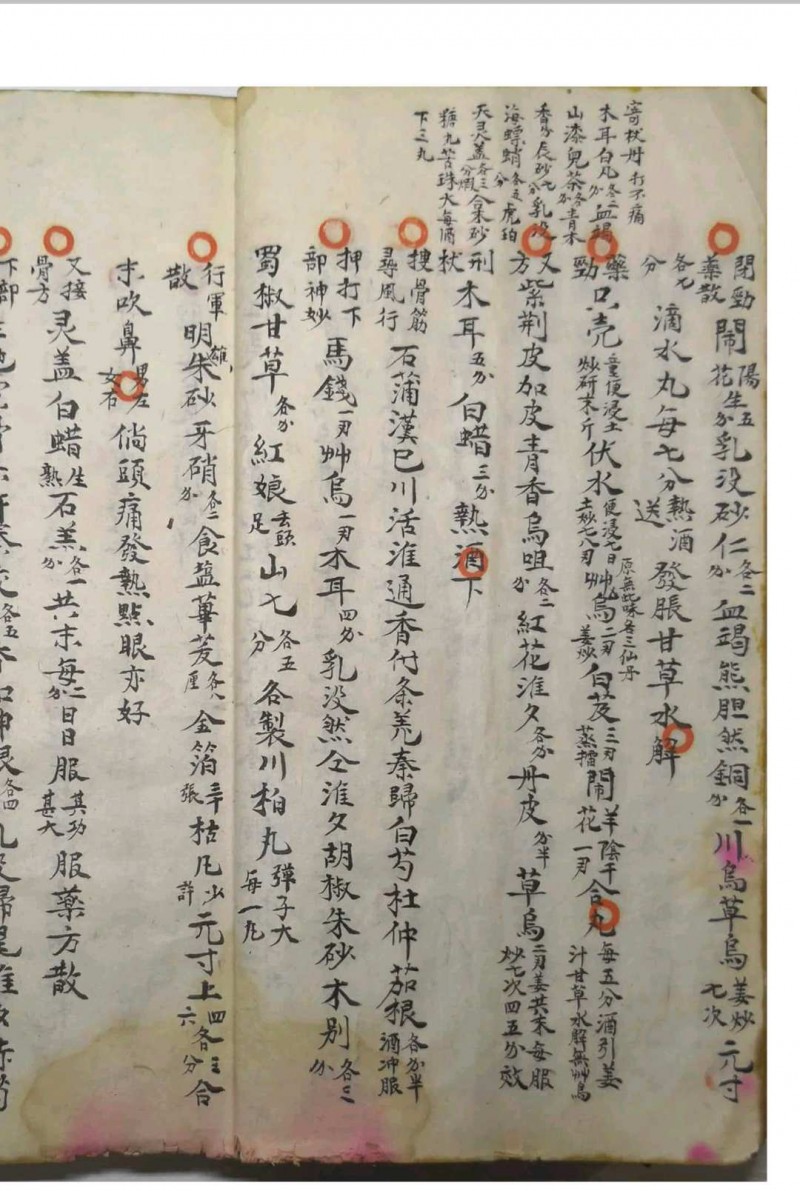 寄杖丹打不痛
木耳白凡各二分血竭
山漆兒茶各分青木
香分辰砂七分乳没
海螵蛸各五分虎珀
天灵盖各三分煅金朱砂
糖丸苦珠大每酒
下三丸
閉勁藥散閙陽花生五分乳没砂仁各二分血竭熊胆然銅各一分川烏草烏姜炒七次元寸
各九分滴水丸每七分熱酒送發脹甘草水解
藥勁只壳童便浸土炒研末斤伏水便浸七日土炒七八刃艸烏二刃姜炒原無此味各三仙丹白芨三刃蒸擂閙羊花陰干一刃合丸每五分酒引姜汁甘草水解無艸烏
又方紫荆皮加皮青香烏咀各二分紅花淮夕各分丹皮分半草烏二刃姜共末每服炒七次四五分效
刑杖木耳五分白蜡三分熱酒下
搜骨筋尋風行石蒲漢巴川活淮通香付条羌秦歸白芍杜仲茄根各分半酒冲服
押打下部神妙馬錢一刃艸烏一刃木耳四分乳没然仝淮夕胡椒朱砂木别各二分
蜀椒甘草各分紅娘去頭足山七各五分各製川柏丸彈子大每一丸
行軍散明雄朱砂牙硝各二分食盐蓽茇各八厘金箔三十張枯凡少許元寸上四各三六分合
末吹鼻男左女右倘頭痛發熱點眼亦好
又接骨方灵盖白蜡生熟石羔各一分共末每二分日日服其功甚大服藥方散